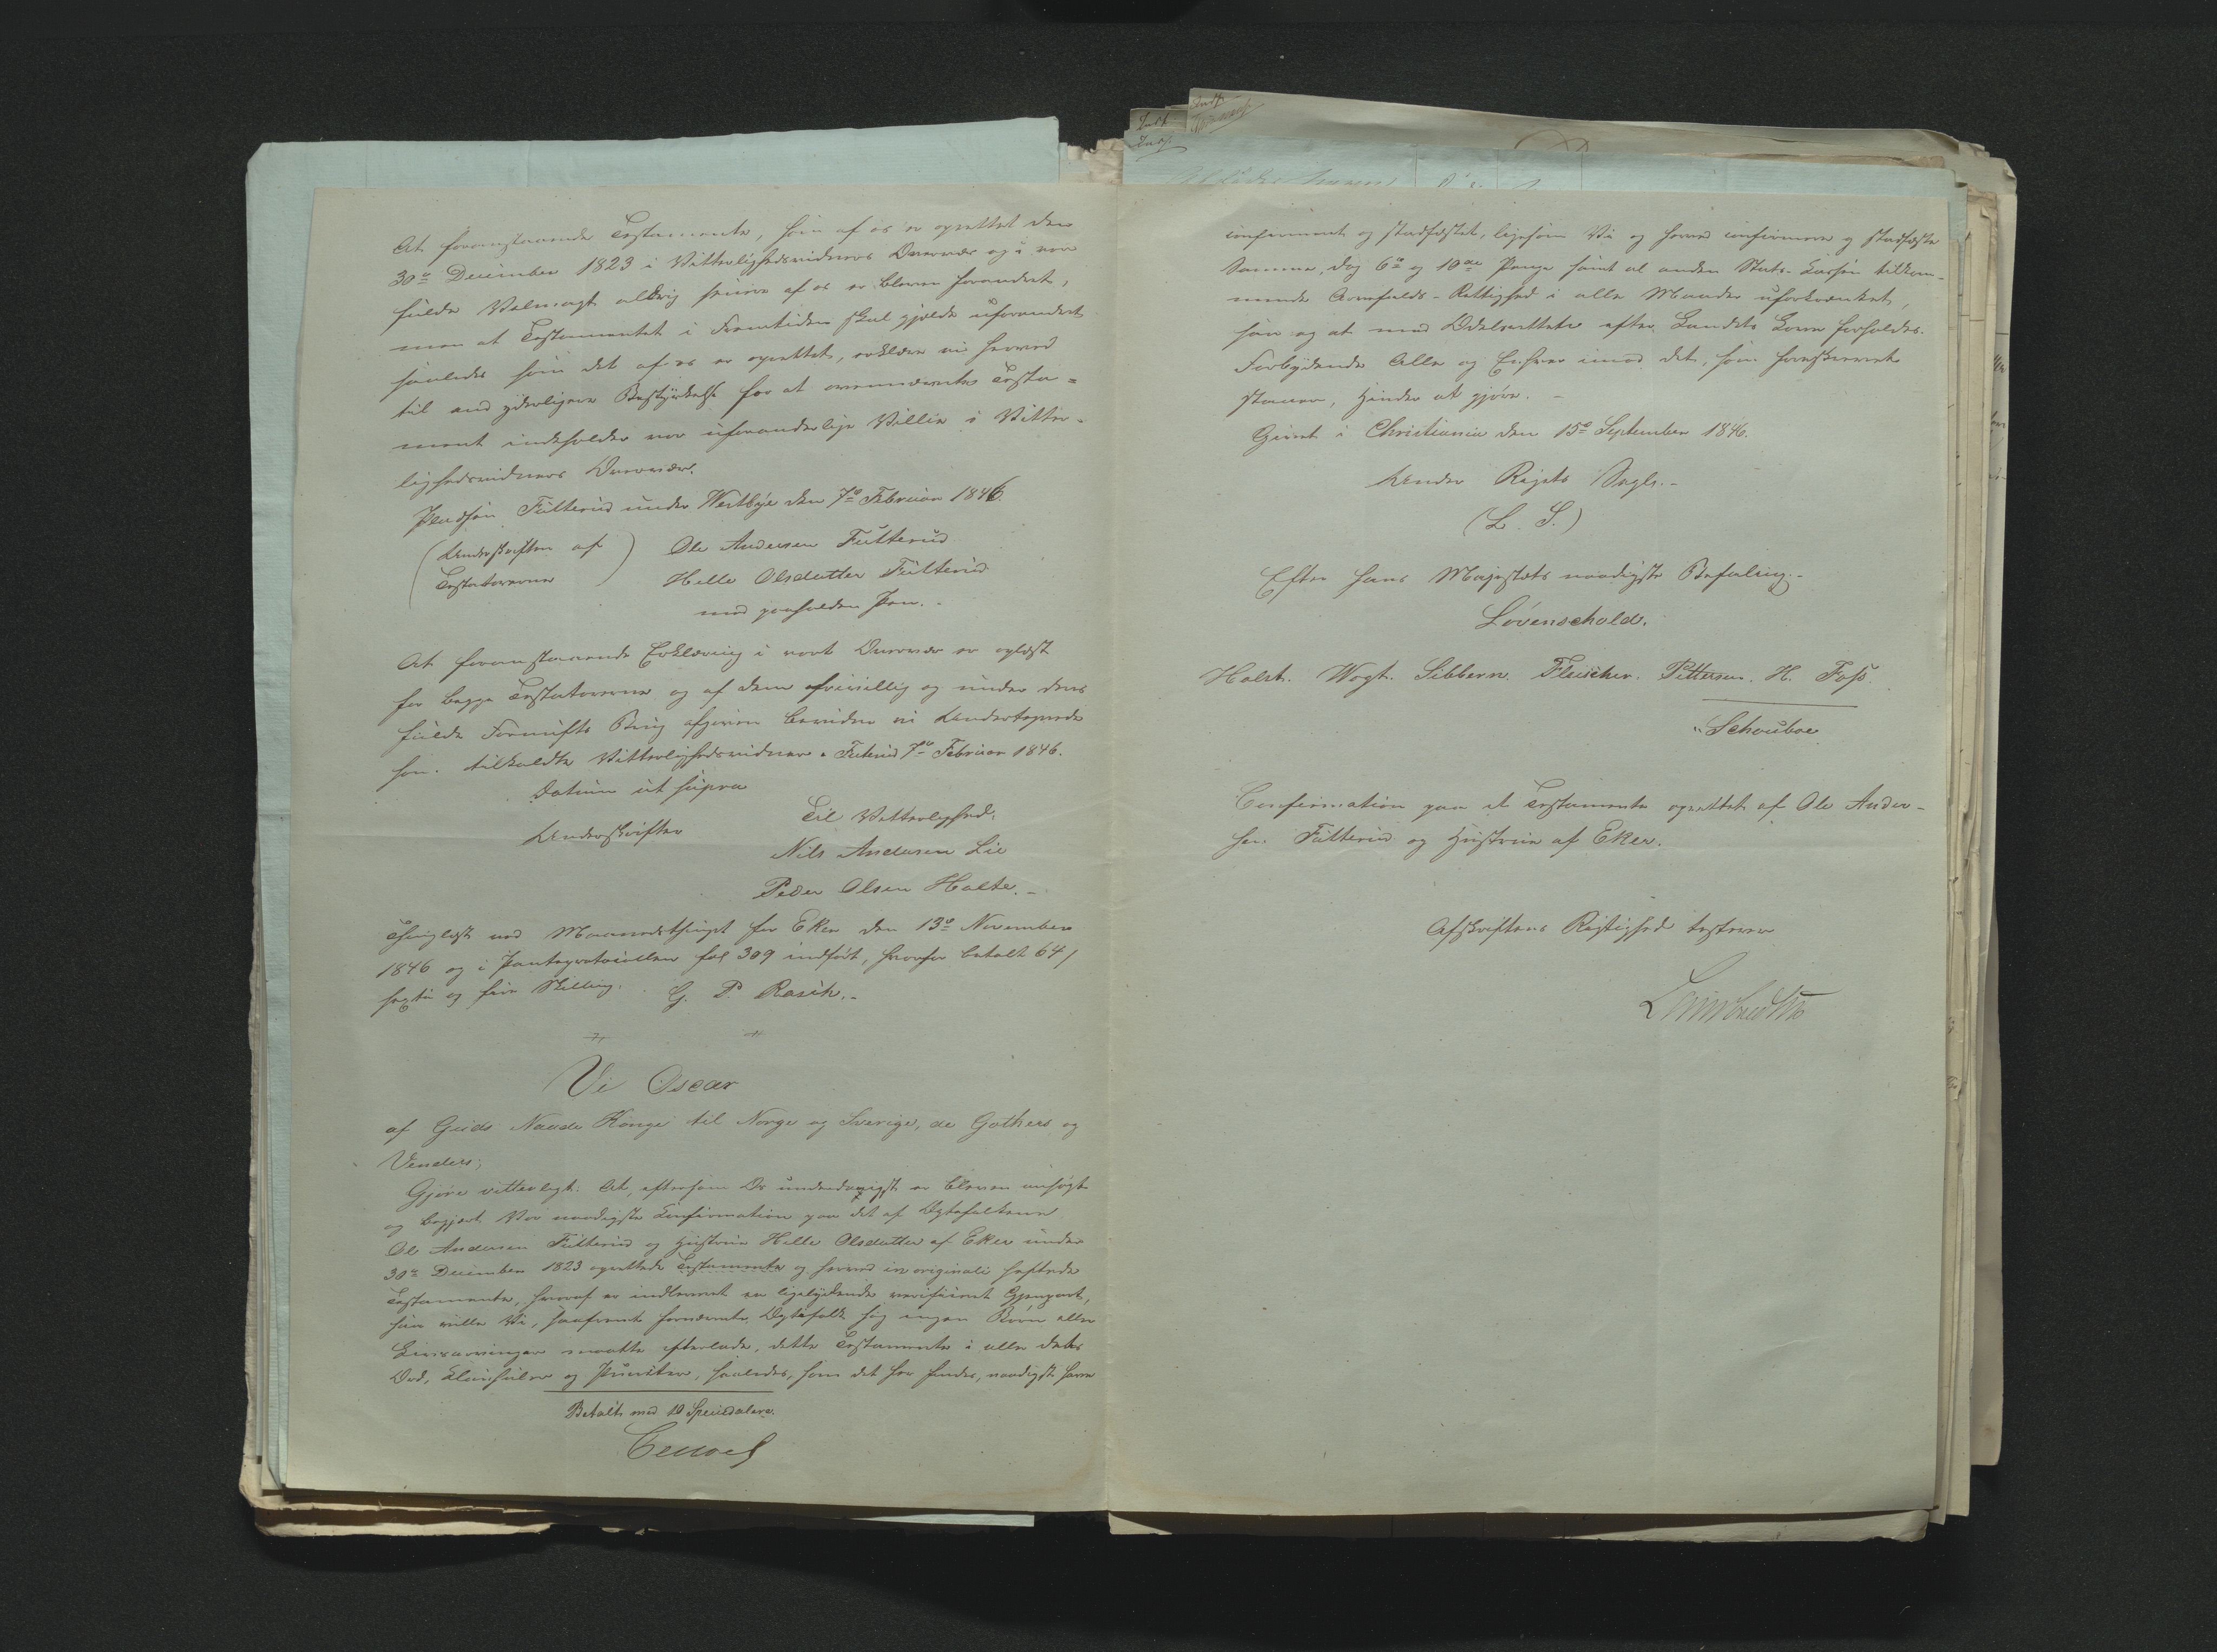 At foranstaaende Testamente, som af os er oprettet den
30te December 1823 i Vitterlighedsvidners Overvær og i vor
fulde Velmagt aldrig senere af os er bleven forandret,
men at Testamentet i Fremtiden skal gjelde uforandret
saaledes som det af os er oprettet, erklære vi herved
til end yderligere Bestyrkelse for at ovennævnte Testa=
ment indeholder vor uforanderlige Villie i Vitter-
lighedsvidners Overvær.
Pladsen Fütterud under Westbye den 7de Februar 1846.
(Underskriften af) Ole Andersen Fütterud
(Testatorerne) Helle Olsdatter Fütterud
med paaholden Pen.-
At foranstaaende Erklæring i vort Overvær er oplæst
for begge Testatorerne og af dem frivillig og under deres
fulde Fornufts Brug afgiven bevidne vi Undertegnede
som tilkaldte Vitterlighedsvidner. Futerud 7de Februar 1846.
Datum ut supra
Til Vitterlighed.
Underskrifter
Nils Andersen Lie
Peder Olsen Holte.-
Thinglæst ved Maanedsthinget for Eker den 13de November
1846 og i Panteprotocollen fol 309 indført, hvorfor betalt 64/
sexti og fire Skilling. G. P. Rasch.-
Vi Oscar
af Guds Naade Konge til Norge og Sverige, de Gothers og
Venders;
Gjøre vitterligt: At, eftersom Os underdanigst er bleven ansøgt
og begjært Vor naadigste Confirmation paa det af Ægtefolkene
Ole Andersen Fütterud og Hustrue Helle Olsdatter af Eker under
30te December 1823 oprettede Testamente og herved in originali heftede
Testamente, hvoraf er indleveret en ligelydende verificeret Gjenpart,
saa ville Vi, saafremt fornævnte Ægtefolk sig ingen Børn eller
Livsarvinger maatte efterlade, dette Testamente i alle dets
Ord, Clausuler og Puncter, saaledes, som det her findes, naadigst have
Betalt med 10 Speciedalere.
confirmeret og stadfæstet, ligesom Vi og herved confirmere og stadfæste
Samme, dog 6te og 10de Penge samt al anden Stats-Cassen tilkom-
mende Arvefalds-Rettighed i alle Maader uforkrænket,
saa og at med Odelsretten efter Landets Love forholdes.
Forbydende Alle og Enhver imod det, som foreskrevet
staaer, Hinder at gjøre.-
Givet i Christiania den 15de September 1846.
Under Rigets Segl.-
(L. S.)
Efter Hans Majestæts naadigste Befaling.-
Løvenschold.
Holst. Vogt. Sibbern. Fleischer. Pettersen. H. Foss.
Schouboe
Confirmation paa et Testamente oprettet af Ole Ander-
sen Fütterud og Hustrue af Eker.
Afskriftens Rigtighed testerer